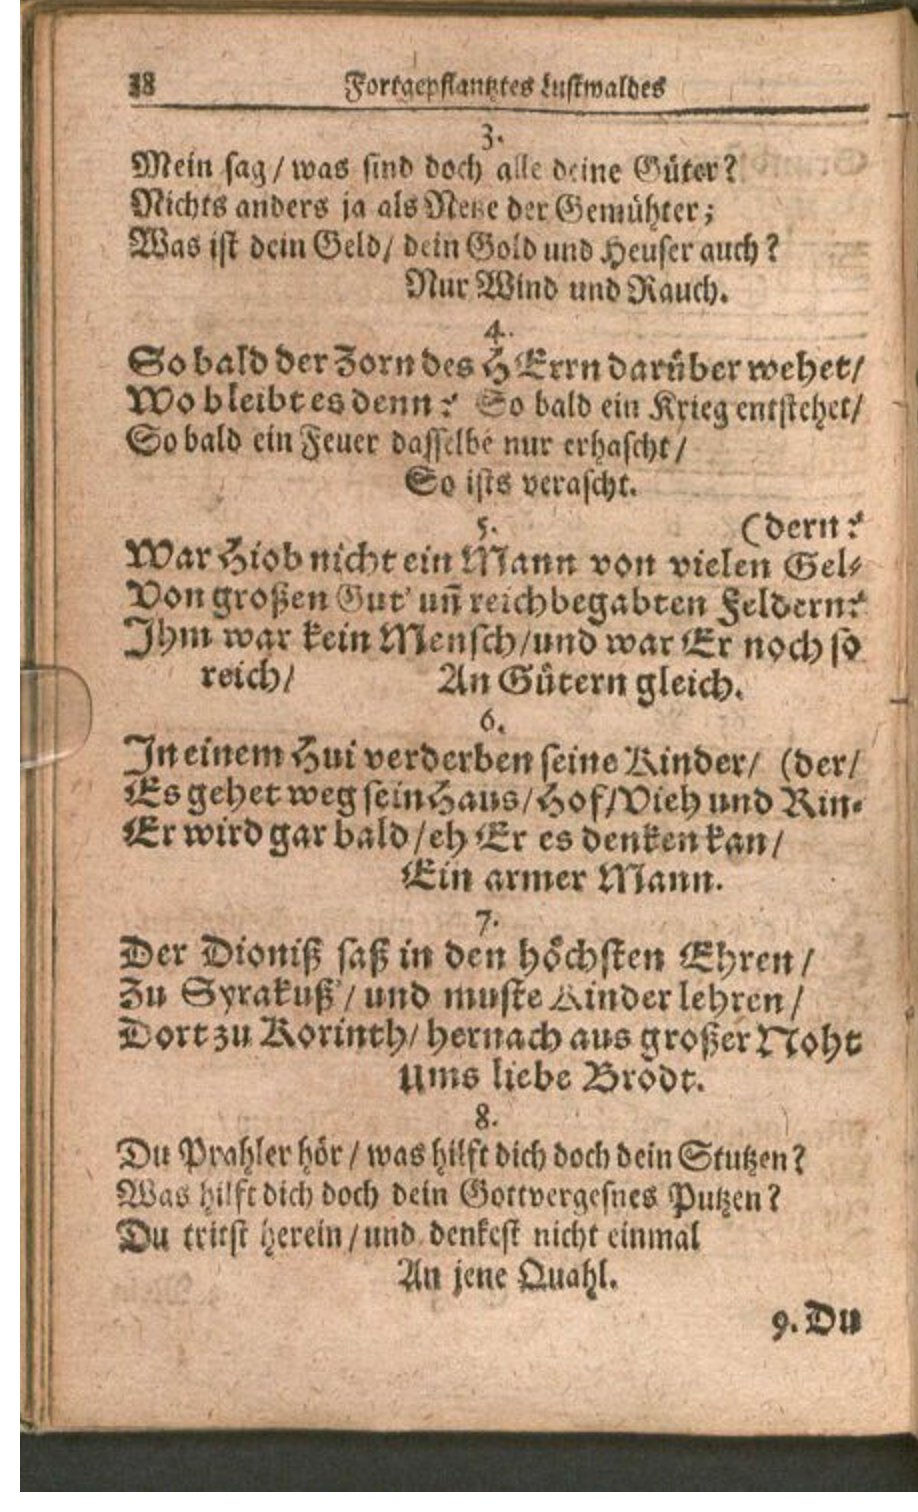 18 Fortgepflantztes Lustwaldes
3.
Mein sag / was sind doch alle deine Güter?
Nichts anders ja als Netze der Gemühter;
Was ist dein Geld / dein Gold und Heuser auch?
Nur Wind und Rauch.
4.
So bald der Zorn des HErrn darüber wehet /
Wo bleibt es denn? So bald ein Krieg entstehet /
So bald ein Feuer dasselbe nur erhascht /
So ists verascht.
5. (dern?
War Hiob nicht ein Mann von vielen Gel-
Von großen Gut' uñ reichbegabten Feldern?
Ihm war kein Mensch / und war Er noch so
reich / An Gütern gleich.
6.
In einem Hui verderben seine Kinder / (der /
Es gehet weg sein Haus / Hof / Vieh und Rin-
Er wird gar bald / eh Er es denken kan /
Ein armer Mann.
7.
Der Dioniß saß in den höchsten Ehren /
Zu Syrakuß' / und muste Kinder lehren /
Dort zu Korinth / hernach aus großer Noht
Ums liebe Brodt.
8.
Du Prahler hör / was hilft dich doch dein Stutzen?
Was hilft dich doch dein Gottvergesnes Putzen?
Du tritst herein / und denkest nicht einmal
An jene Quahl.
9. Du